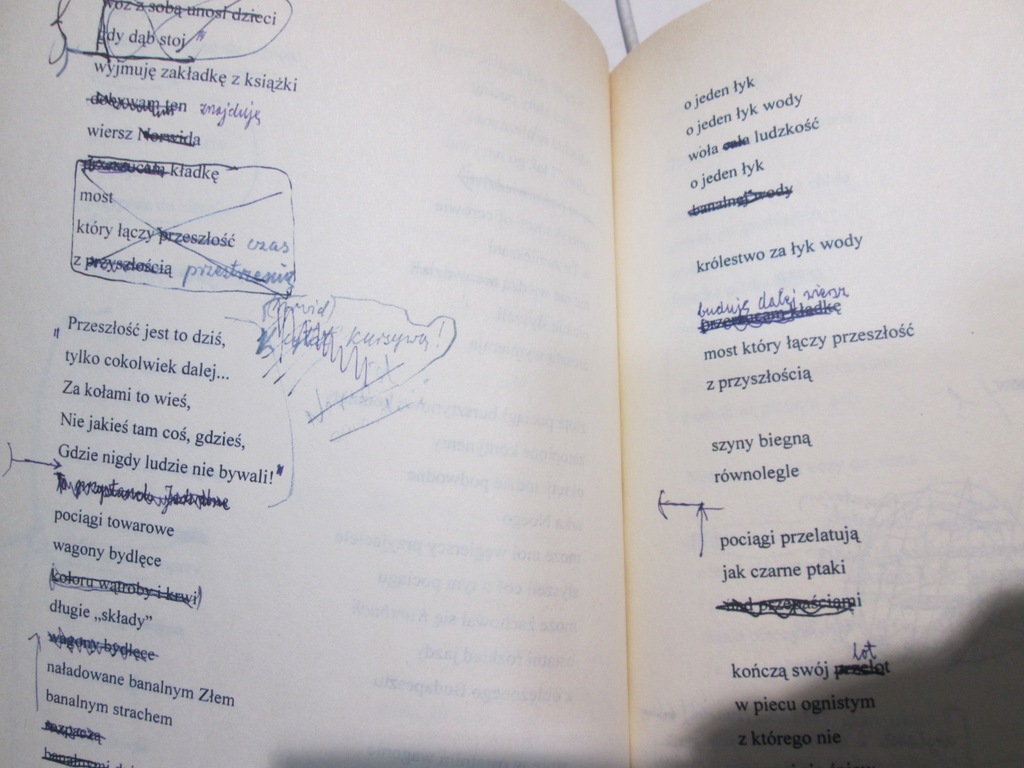 wóz z sobą unosi dzieci
gdy dąb stoi"
wyjmuję zakładkę z książki
ten znajduję
wiersz Norwida
przerzucam kładkę
most
który łączy przeszłość czas
z przyszłością przestrzenią
kursywą!
"Przeszłość jest to dziś,
tylko cokolwiek dalej...
Za kołami to wieś,
Nie jakieś tam coś, gdzieś,
Gdzie nigdy ludzie nie bywali!"
pociągi towarowe
wagony bydlęce
koloru wątroby i krwi
długie „składy”
wagony bydlęce
naładowane banalnym Złem
banalnym strachem
rozpaczą
o jeden łyk
o jeden łyk wody
woła cała ludzkość
o jeden łyk
banalnej wody
królestwo za łyk wody
buduję dalej wiersz
przerzucam kładkę
most który łączy przeszłość
z przyszłością
szyny biegną
równolegle
pociągi przelatują
jak czarne ptaki
nad przepaściami
lot
kończą swój przelot
w piecu ognistym
z którego nie